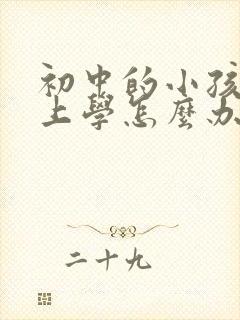 初中的小孩
上學怎麼办
二十九